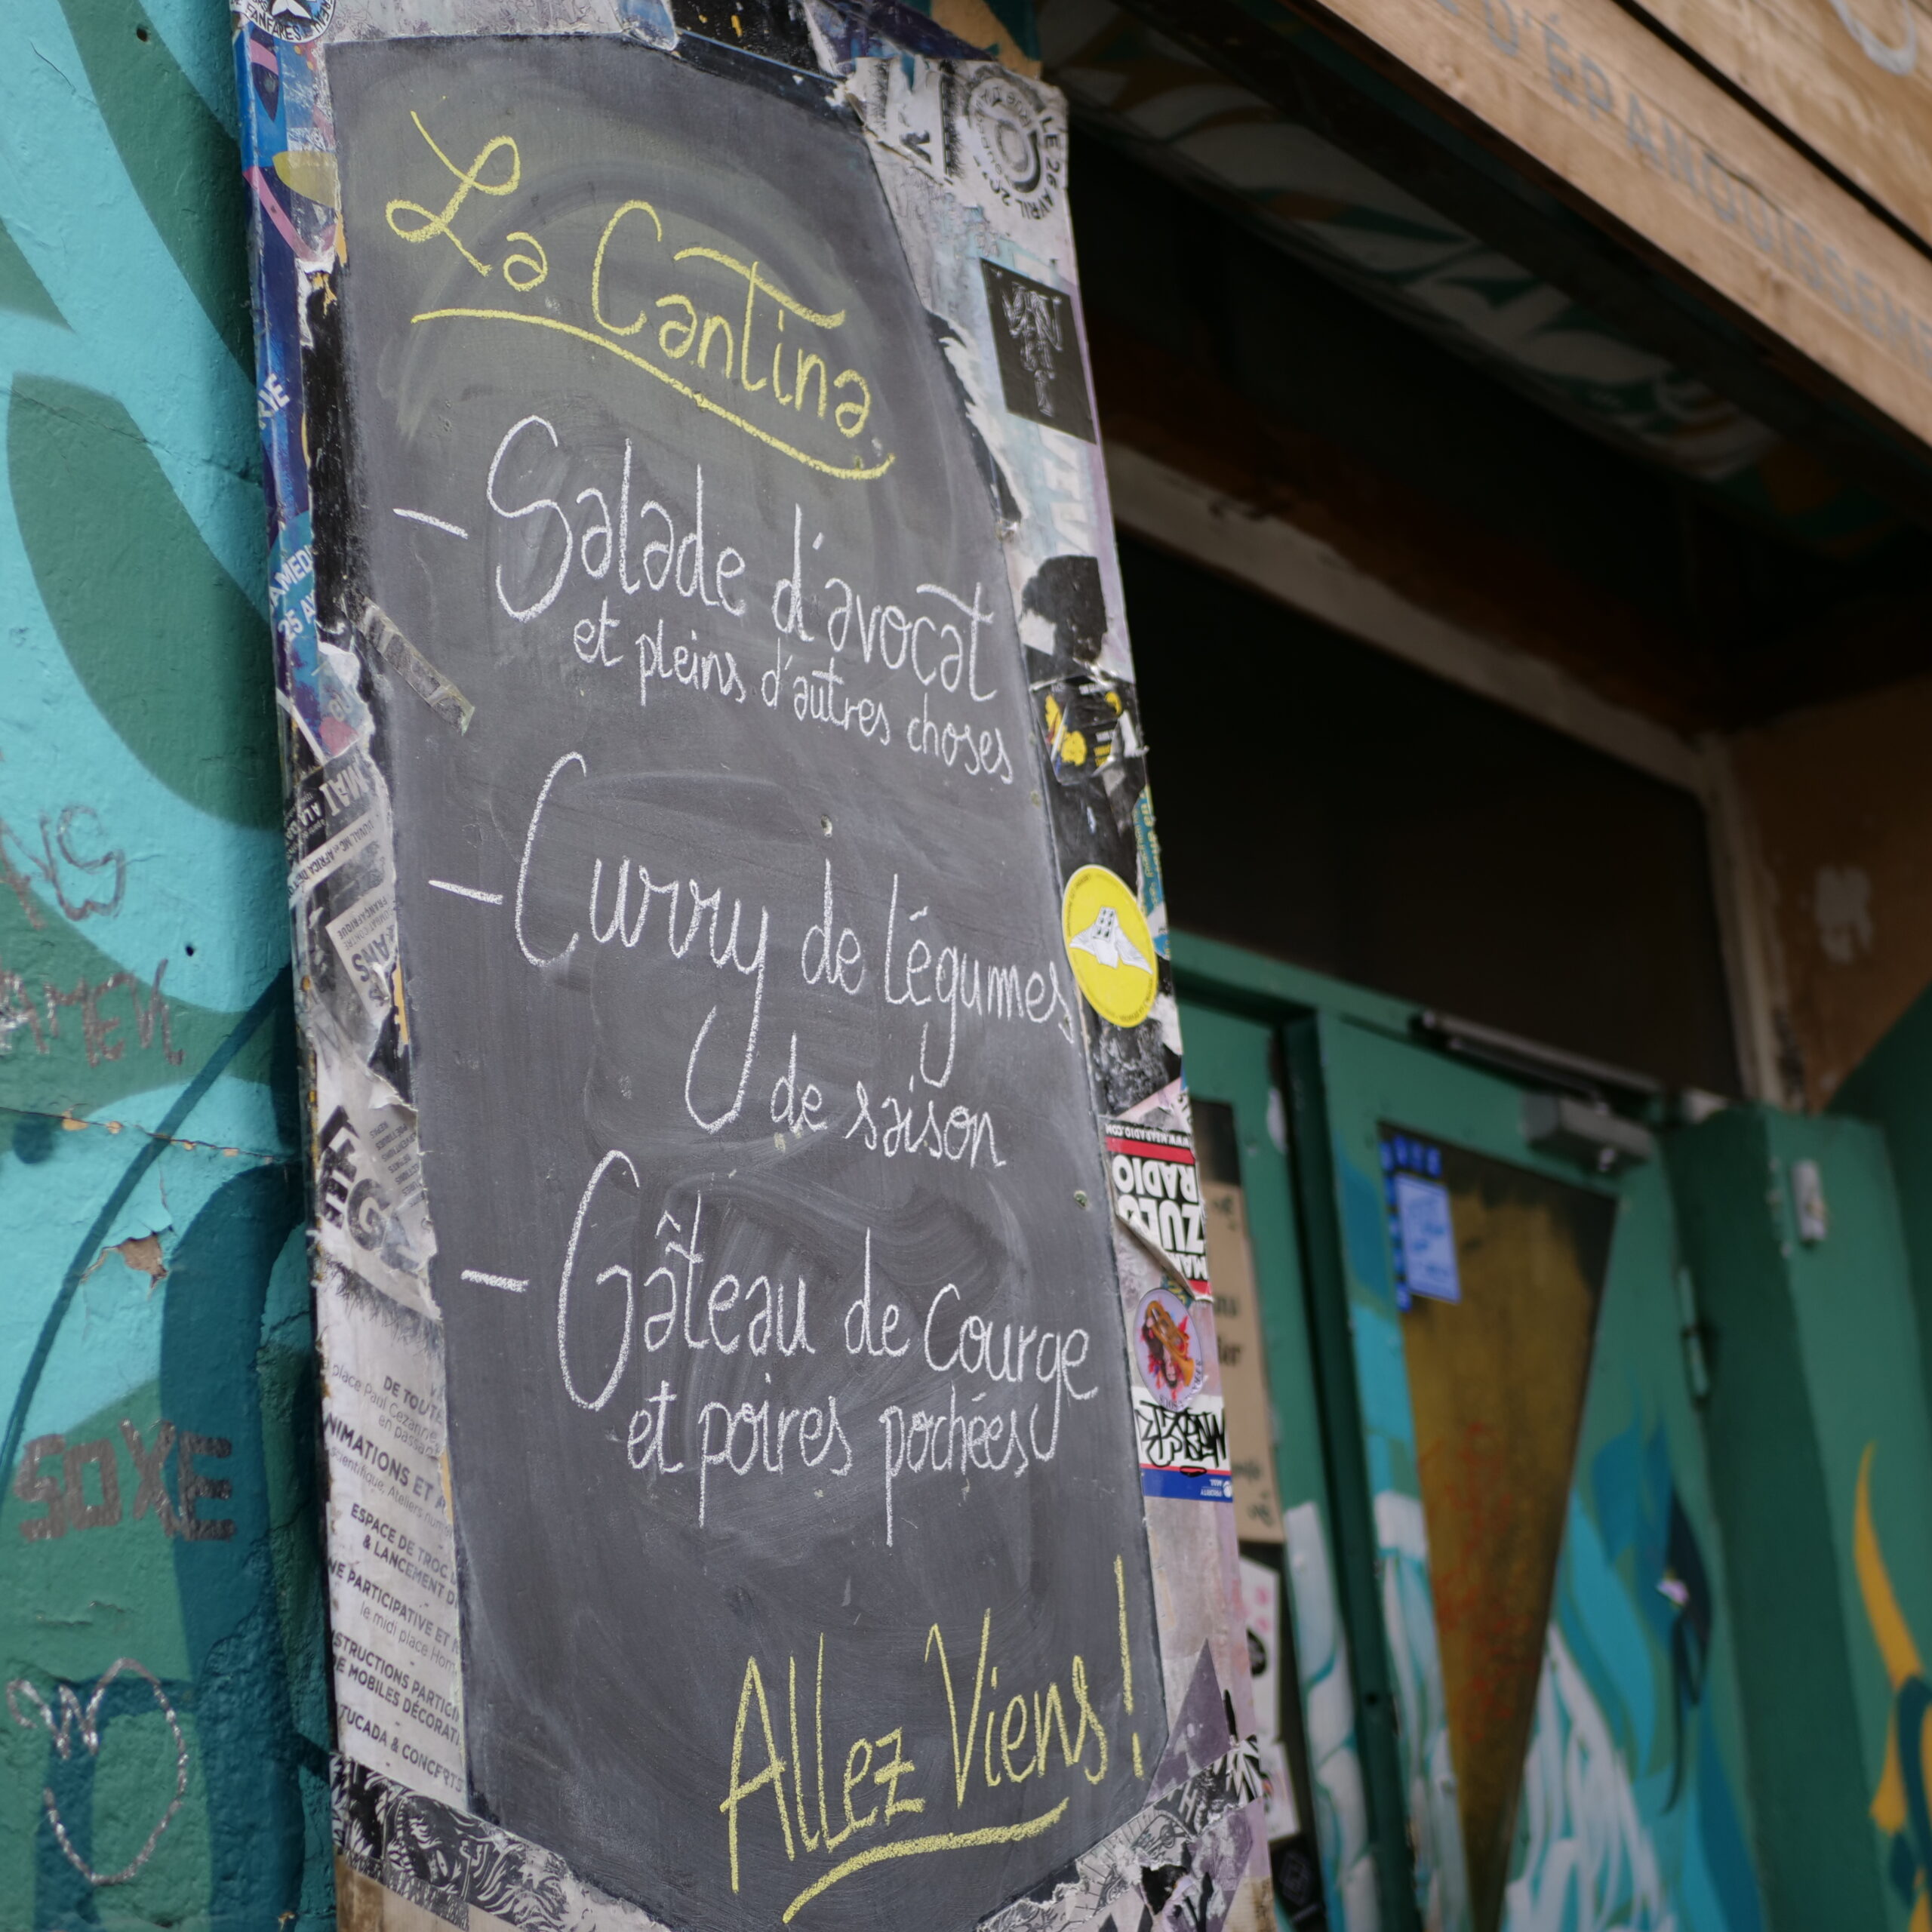 La Cantina
- Salade d'avocat
et pleins d'autres choses
- Curry de légumes
de saison
- Gâteau de courge
et poires pochées
Allez Viens !
D'ÉPANOUISSEM
LE 26 AVRIL
FANFARES
RIE
AMEDI
25 A
MAI
FRANÇAFRIQUE
DE TOUT
place Paul Cezanne
en passa
NIMATIONS ET A
ESPACE DE TROC
& LANCEMENT D
NE PARTICIPATIVE ET
le midi place Hom
STRUCTIONS PARTICIP
DE MOBILES DÉCORATI
TUCADA & CONCERTS
RADIO
ZULU
SOXE